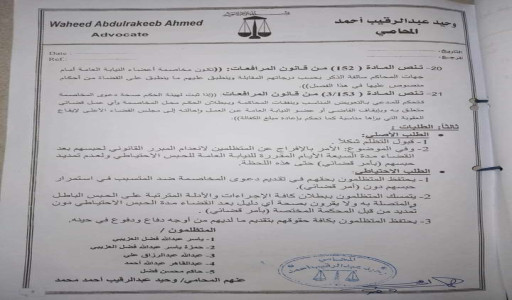 Waheed Abdulrakeeb Ahmed
Advocate
وحيد عبدالرقيب أحمد
المحامي
Date
Ref.
التاريخ:
20- تنص المادة (152) من قانون المرافعات: ((تكون مخاصمة أعضاء النيابة العامة أمام
جهات المحاكم سالفة الذكر بحسب درجاتهم المقابلة وينطبق عليهم ما ينطبق على القضاة من أحكام
منصوص عليها في هذا الفصل)).
21- تنص المادة (3/153) من قانون المرافعات: ((إذا ثبت لهيئة الحكم صحة دعوى المخاصمة
فتحكم للمدعي بالتعويض المناسب وبنفقات المحاكمة وببطلان الحكم محل المخاصمة وأي عمل قضائي
متعلق به وبإيقاف القاضي أو عضو النيابة العامة عن العمل وإحالته إلى مجلس القضاء الأعلى لإيقاع
العقوبة التي يراها مناسبة كما تحكم بإعادة مبلغ الكفالة)).
ثالثاً: الطلبات:
• الطلب الأصلي:
1- قبول التظلم شكلاً.
2- وفي الموضوع: الأمر بالإفراج عن المتظلمين لانعدام المبرر القانوني لحبسهم بعد
انقضاء مدة السبعة الأيام المقررة للنيابة العامة للحبس الاحتياطي ولعدم تمديد
حبسهم (بأمر قضائي) حتى هذه اللحظة.
• الطلب الاحتياطي:
1- يحتفظ المتظلمون بحقهم في تقديم دعوى المخاصمة ضد المتسبب في استمرار
حبسهم دون (أمر قضائي).
2- يتمسك المتظلمون ببطلان كافة الإجراءات والأدلة المترتبة على الحبس الباطل
والمتصلة به ولا يقرون بصحة أي دليل بعد انقضاء مدة الحبس الاحتياطي دون
تمديد من قبل المحكمة المختصة (بأمر قضائي).
3- يحتفظ المتظلمون بكافة حقوقهم بتقديم ما لديهم من أوجه دفاع ودفوع في حينه.
المتظلمون /
1- ياسر عبدالله فضل العزيبي
2- حمزة ياسر عبدالله العزيبي
3- عبدالله عبدالرزاق علي
4- عبدالقاهر عبدالله أحمد
5- حاكم محسن فضل
عنهم المحامي/ وحيد عبدالرقيب أحمد محمد
المحامي
وحيد عبدالرقيب أحمد